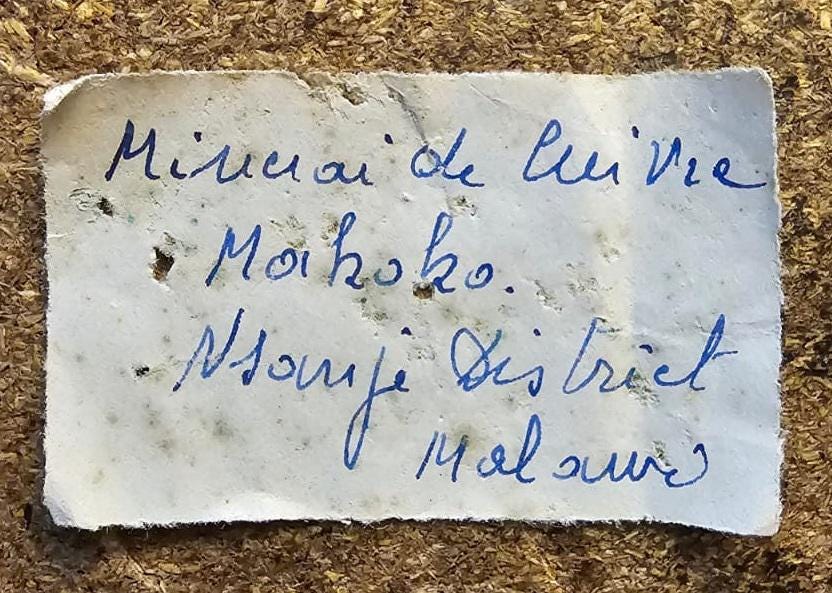 Minerai de Cuivre
Makoko.
Nsanje District
Malawi